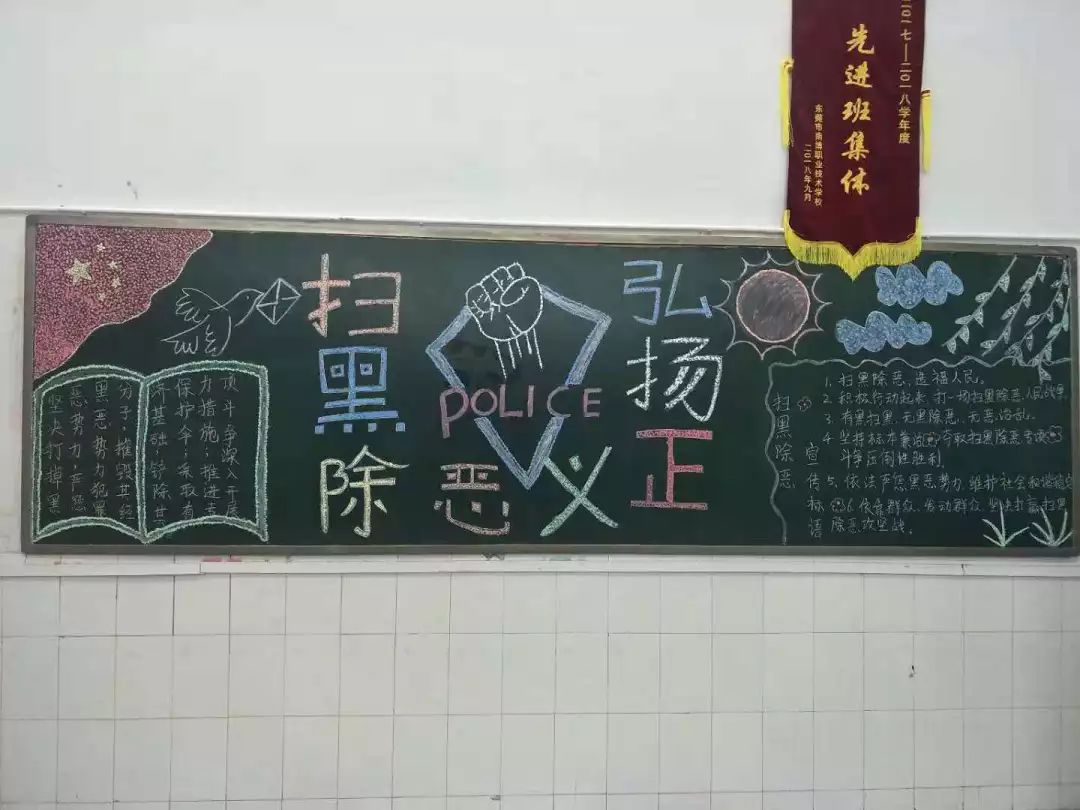 二〇一七—二〇一八学年度
先进班集体
东莞市南博职业技术学校
二〇一八年九月
扫黑除恶
弘扬正义
POLICE
坚决打掉黑
恶势力,严惩
黑恶势力犯罪
分子,摧毁其经
济基础;铲除其
保护伞;采取有
力措施,推进专
顶斗争深入开展
扫黑除恶
宣传标语
1. 扫黑除恶、造福人民。
2. 积极行动起来,打一场扫黑除恶人民战
3. 有黑扫黑、无黑除恶、无恶治乱。
4. 坚持标本兼治 夺取扫黑除恶专项
斗争压倒性胜利。
5、依法严惩黑恶势力,维护社会和谐稳定
6. 依靠群众、发动群众、坚决打赢扫黑
除恶攻坚战。